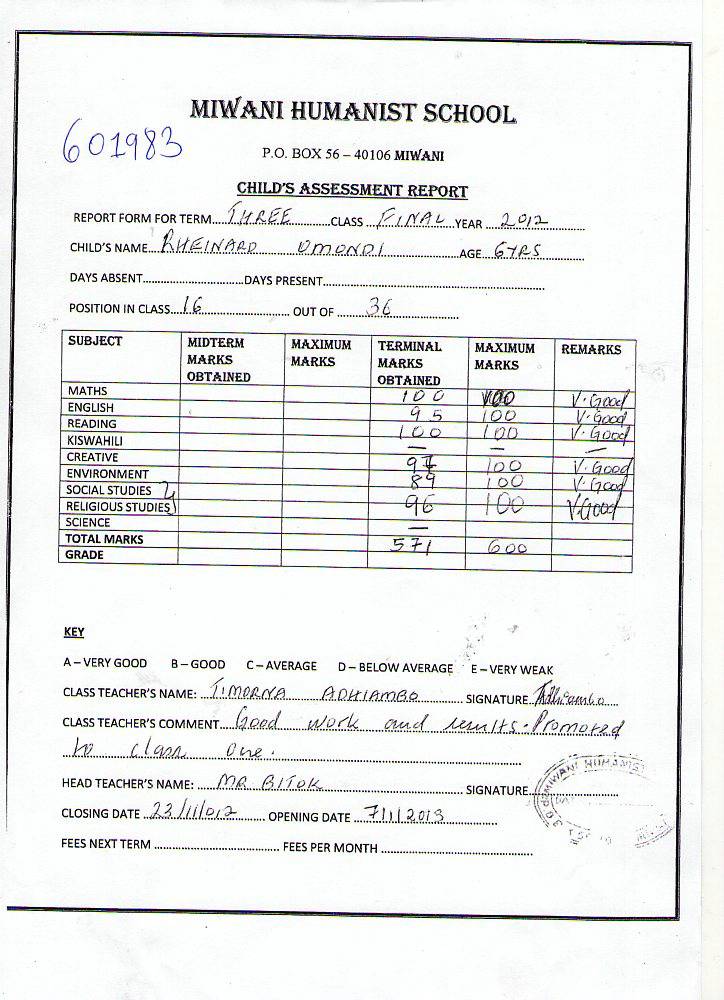 MIWANI HUMANIST SCHOOL
601983
P.O. BOX 56 – 40106 MIWANI
CHILD'S ASSESSMENT REPORT
REPORT FORM FOR TERM...THREE...CLASS...FINAL YEAR...2012
CHILD'S NAME...RHEINARD OMONDI AGE...6YRS
DAYS ABSENT...DAYS PRESENT...
POSITION IN CLASS...16... OUT OF...36
SUBJECT MIDTERM MARKS OBTAINED MAXIMUM MARKS TERMINAL MARKS OBTAINED MAXIMUM MARKS REMARKS
MATHS 100 100 V.Good
ENGLISH 95 100 V.Good
READING 100 100 V.Good
KISWAHILI — — —
CREATIVE 100 V.Good
ENVIRONMENT 89 100 V.Good
SOCIAL STUDIES
RELIGIOUS STUDIES 96 100 V.Good
SCIENCE —
TOTAL MARKS 571 600
GRADE
KEY
A – VERY GOOD B – GOOD C – AVERAGE D – BELOW AVERAGE E – VERY WEAK
CLASS TEACHER'S NAME: ADHIAMBO SIGNATURE...Adhiambo
CLASS TEACHER'S COMMENT...Good work and results. Promoted
to class one.
HEAD TEACHER'S NAME: MR BITOK SIGNATURE...
CLOSING DATE...23/11/012 OPENING DATE...7/1/2013
FEES NEXT TERM... FEES PER MONTH...
MIWANI HUMANIST